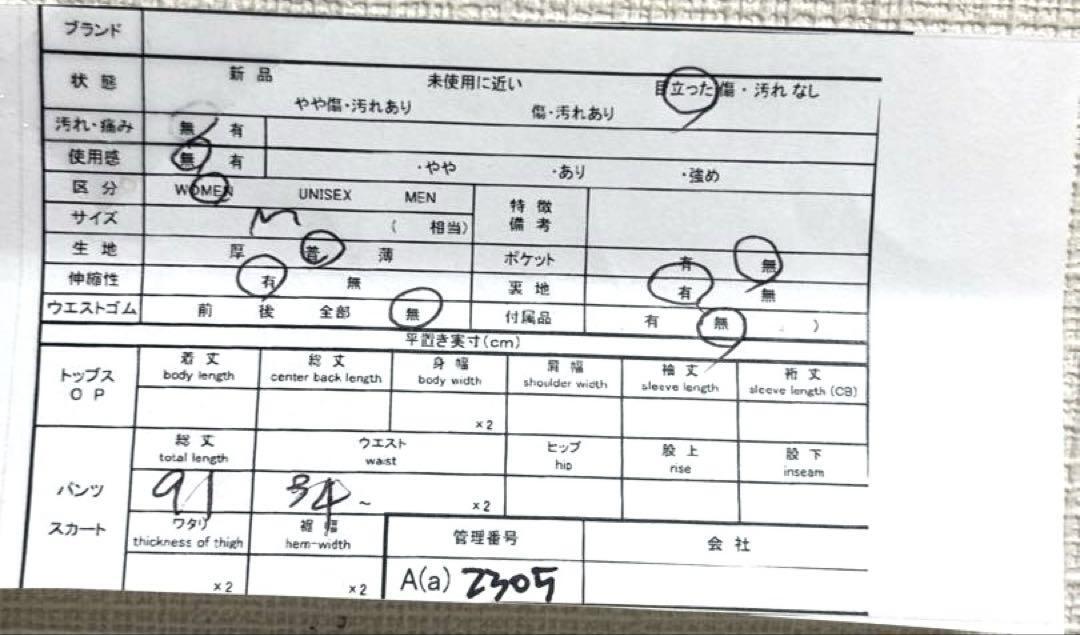 ブランド
状 態 新 品 未使用に近い 目立った傷・汚れ なし
やや傷・汚れあり 傷・汚れあり
汚れ・痛み 無 有
使用感 無 有 ・やや ・あり ・強め
区 分 WOMEN UNISEX MEN 特 徴
備 考
サイズ M ( 相当)
生 地 厚 普 薄 ポケット 有 無
伸縮性 有 無 裏 地 有 無
ウエストゴム 前 後 全部 無 付属品 有 無 )
平置き実寸(cm)
トップス
O P
着 丈 総 丈 身 幅 肩 幅 袖 丈 裄 丈
body length center back length body width shoulder width sleeve length sleeve length (CB)
×2
パンツ
スカート
総 丈 ウエスト ヒップ 股 上 股 下
total length waist hip rise inseam
91 34 ~ ×2
ワタリ 裾 幅 管理番号 会 社
thickness of thigh hem-width
×2 ×2 A(a) 2305